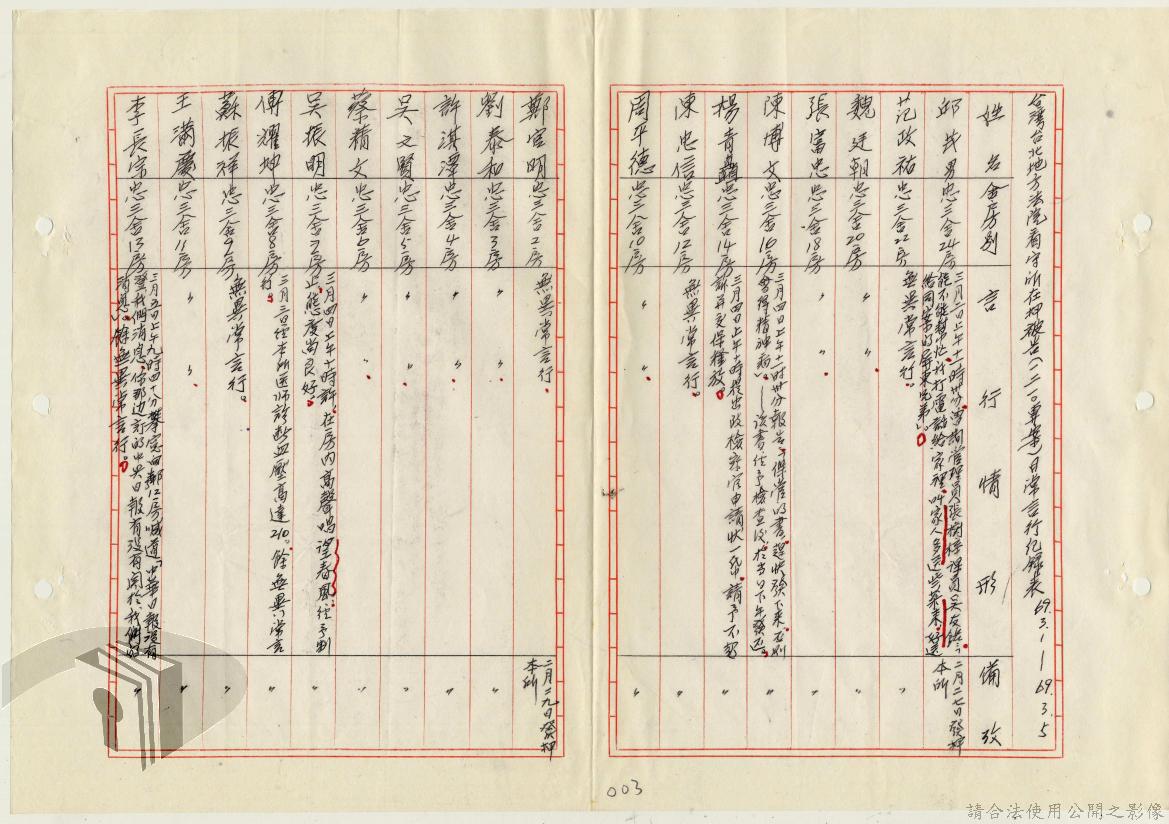 台灣台北地方法院看守所在押被告(一二一〇專案)日常言行紀錄表 69.3.1—69.3.5
姓名 舍房別 言行情形 備攷
邱茂男 忠三舍24房 三月二日上午十一時卅分曾詢管理員張樹
能不能幫忙,找打電話給家裡,叫家人多送些菜來,好送
給同案的屏東兄弟」。
二月二七日發押
本所
范政祐 忠三舍22房 無異常言行。 〃
魏廷朝 忠三舍20房 〃 〃 〃
張富忠 忠三舍18房 〃 〃 〃
陳博文 忠三舍16房 三月四日上午十一時卅分報告「保管的書,趕快發下來,否則
會得精神病」—該書經予檢查後,於當日下午發還。 〃
楊青矗 忠三舍14房 三月四日上午十時提出致檢察官申請狀一份,請予不起
訴再交保釋放。 〃
陳忠信 忠三舍12房 無異常言行。 〃
周平德 忠三舍10房 〃 〃 〃
鄭官明 忠三舍2房 無異常言行。
二月二九日發押
本所
劉泰和 忠三舍3房 〃 〃 〃
許淇潭 忠三舍4房 〃 〃 〃
吳文賢 忠三舍5房 〃 〃 〃
蔡精文 忠三舍6房 〃 〃 〃
吳振明 忠三舍7房 三月四日上午十時許,在房內高聲唱望春風經予制
止,態度尚良好。 〃
傅耀坤 忠三舍8房 三月三日經本所医師診斷血壓高達210。餘無異常言
行。 〃
蘇振祥 忠三舍9房 無異常言行。 〃
王滿慶 忠三舍11房 〃 〃 〃
李長宗 忠三舍13房 三月五日上午九時四八分攀窓向鄰12房喊道「中華日報沒有
登我們消息,你那边訂的中央日報有沒有關於我們的
消息」餘無異常言行。 〃
003
請合法使用公開之影像